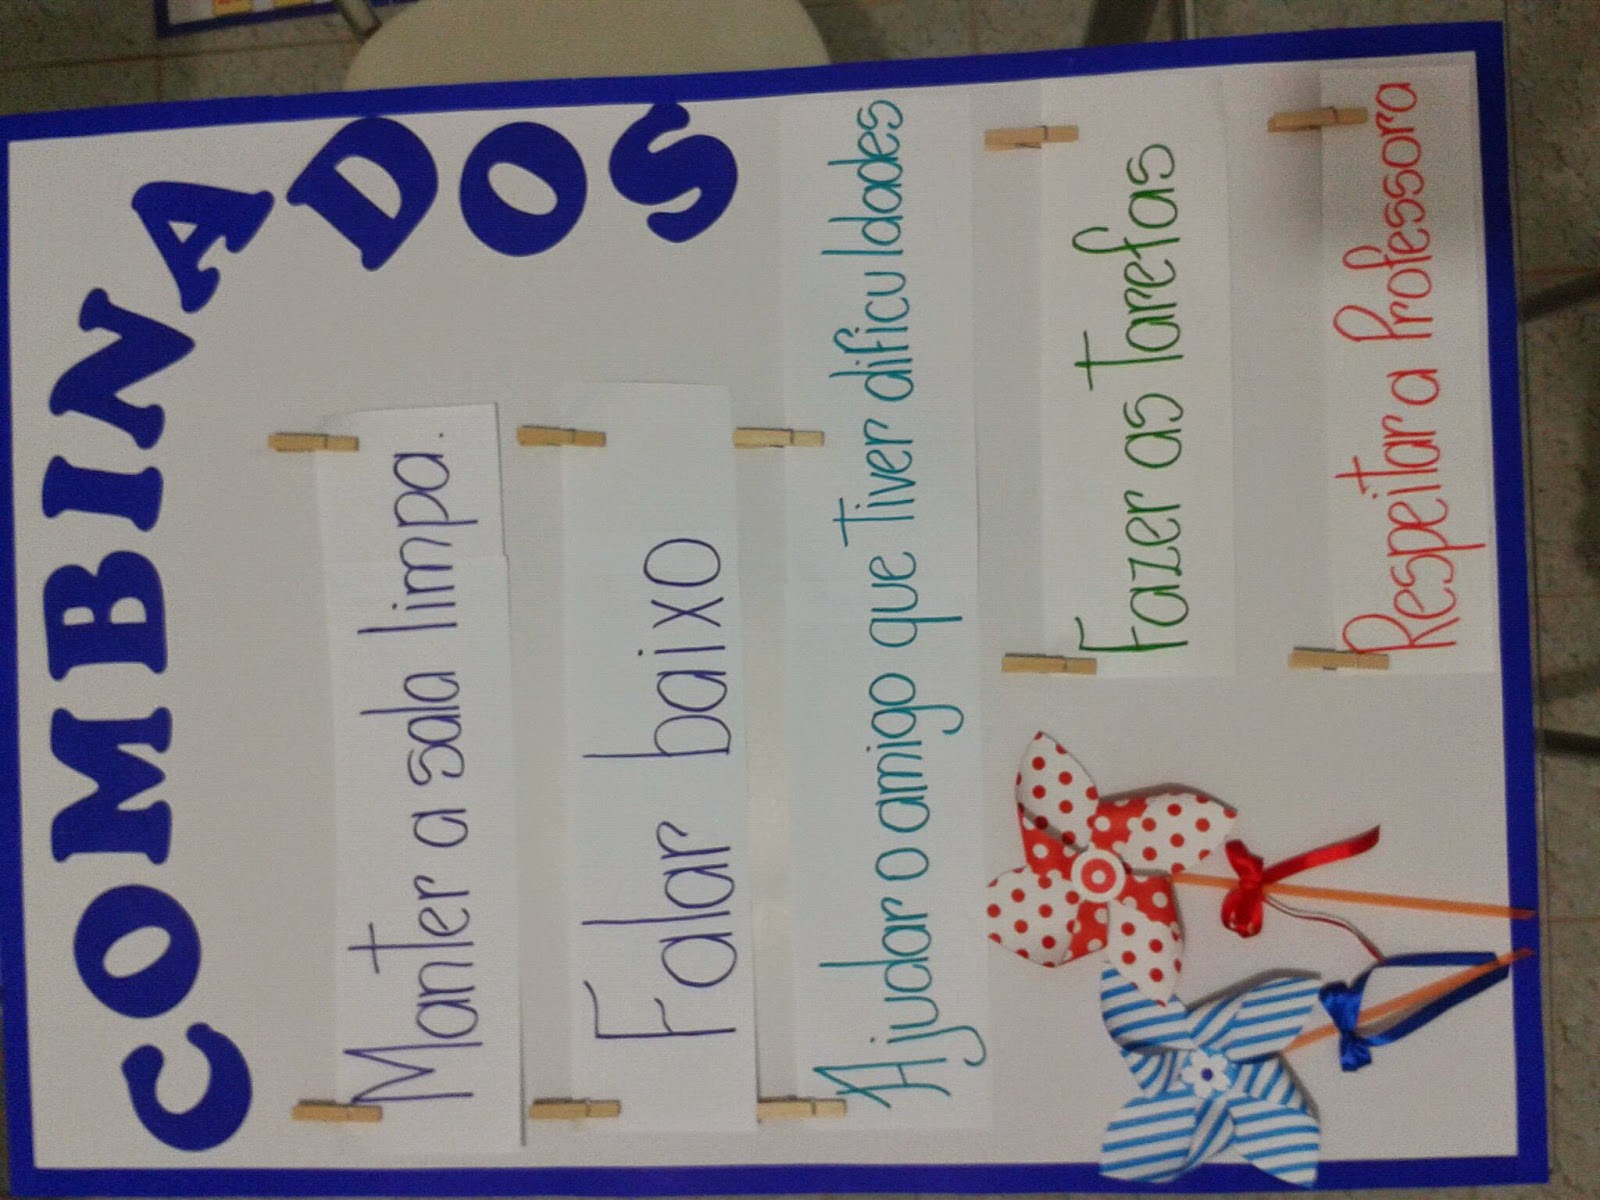 COMBINADOS
Manter a sala limpa.
Falar baixo
Ajudar o amigo que tiver dificuldades
Fazer as tarefas
Respeitar a Professora